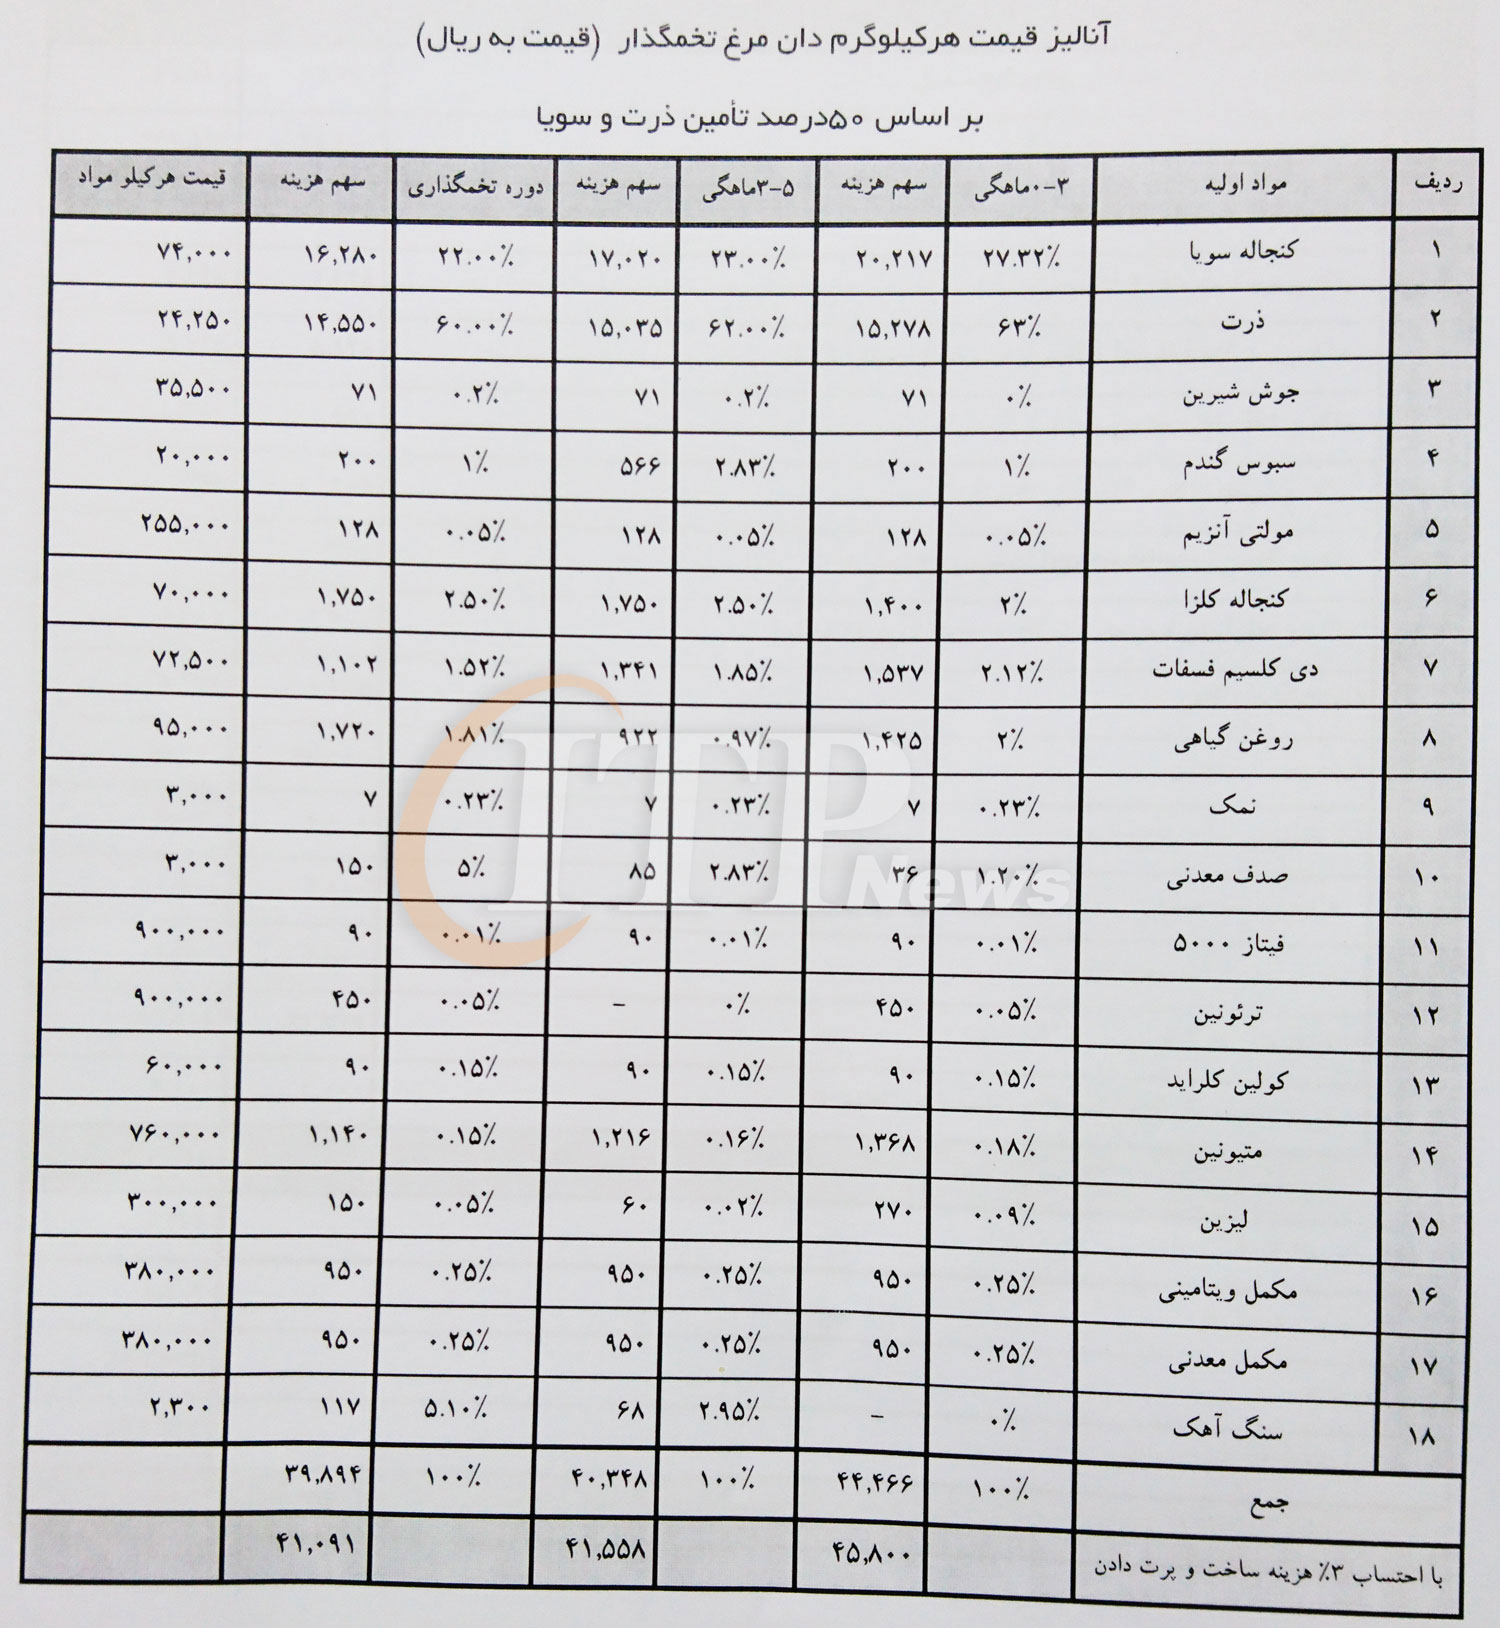 آنالیز قیمت هرکیلوگرم دان مرغ تخمگذار (قیمت به ریال)
بر اساس ۵۰درصد تأمین ذرت و سویا
ردیف مواد اولیه ۳-۰ماهگی سهم هزینه ۵-۳ماهگی سهم هزینه دوره تخمگذاری سهم هزینه قیمت هرکیلو مواد
۱ کنجاله سویا ۲۷.۳۲٪ ۲۰,۲۱۷ ۲۳.۰۰٪ ۱۷,۰۲۰ ۲۲.۰۰٪ ۱۶,۲۸۰ ۷۴,۰۰۰
۲ ذرت ۶۳٪ ۱۵,۲۷۸ ۶۲.۰۰٪ ۱۵,۰۳۵ ۶۰.۰۰٪ ۱۴,۵۵۰ ۲۴,۲۵۰
۳ جوش شیرین ۰٪ ۷۱ ۰.۲٪ ۷۱ ۰.۲٪ ۷۱ ۳۵,۵۰۰
۴ سبوس گندم ۱٪ ۲۰۰ ۲.۸۳٪ ۵۶۶ ۱٪ ۲۰۰ ۲۰,۰۰۰
۵ مولتی آنزیم ۰.۰۵٪ ۱۲۸ ۰.۰۵٪ ۱۲۸ ۰.۰۵٪ ۱۲۸ ۲۵۵,۰۰۰
۶ کنجاله کلزا ۲٪ ۱,۴۰۰ ۲.۵۰٪ ۱,۷۵۰ ۲.۵۰٪ ۱,۷۵۰ ۷۰,۰۰۰
۷ دی کلسیم فسفات ۲.۱۲٪ ۱,۵۳۷ ۱.۸۵٪ ۱,۳۴۱ ۱.۵۲٪ ۱,۱۰۲ ۷۲,۵۰۰
۸ روغن گیاهی ۲٪ ۱,۴۲۵ ۰.۹۷٪ ۹۲۲ ۱.۸۱٪ ۱,۷۲۰ ۹۵,۰۰۰
۹ نمک ۰.۲۳٪ ۷ ۰.۲۳٪ ۷ ۰.۲۳٪ ۷ ۳,۰۰۰
۱۰ صدف معدنی ۱.۲۰٪ ۳۶ ۲.۸۳٪ ۸۵ ۵٪ ۱۵۰ ۳,۰۰۰
۱۱ فیتاز ۵۰۰۰ ۰.۰۱٪ ۹۰ ۰.۰۱٪ ۹۰ ۰.۰۱٪ ۹۰ ۹۰۰,۰۰۰
۱۲ ترئونین ۰.۰۵٪ ۴۵۰ ۰٪ - ۰.۰۵٪ ۴۵۰ ۹۰۰,۰۰۰
۱۳ کولین کلراید ۰.۱۵٪ ۹۰ ۰.۱۵٪ ۹۰ ۰.۱۵٪ ۹۰ ۶۰,۰۰۰
۱۴ متیونین ۰.۱۸٪ ۱,۳۶۸ ۰.۱۶٪ ۱,۲۱۶ ۰.۱۵٪ ۱,۱۴۰ ۷۶۰,۰۰۰
۱۵ لیزین ۰.۰۹٪ ۲۷۰ ۰.۰۲٪ ۶۰ ۰.۰۵٪ ۱۵۰ ۳۰۰,۰۰۰
۱۶ مکمل ویتامینی ۰.۲۵٪ ۹۵۰ ۰.۲۵٪ ۹۵۰ ۰.۲۵٪ ۹۵۰ ۳۸۰,۰۰۰
۱۷ مکمل معدنی ۰.۲۵٪ ۹۵۰ ۰.۲۵٪ ۹۵۰ ۰.۲۵٪ ۹۵۰ ۳۸۰,۰۰۰
۱۸ سنگ آهک ۰٪ - ۲.۹۵٪ ۶۸ ۵.۱۰٪ ۱۱۷ ۲,۳۰۰
جمع ۱۰۰٪ ۴۴,۴۶۶ ۱۰۰٪ ۴۰,۳۴۸ ۱۰۰٪ ۳۹,۸۹۴
با احتساب ۳٪ هزینه ساخت و پرت دادن ۴۵,۸۰۰ ۴۱,۵۵۸ ۴۱,۰۹۱
ITPNews